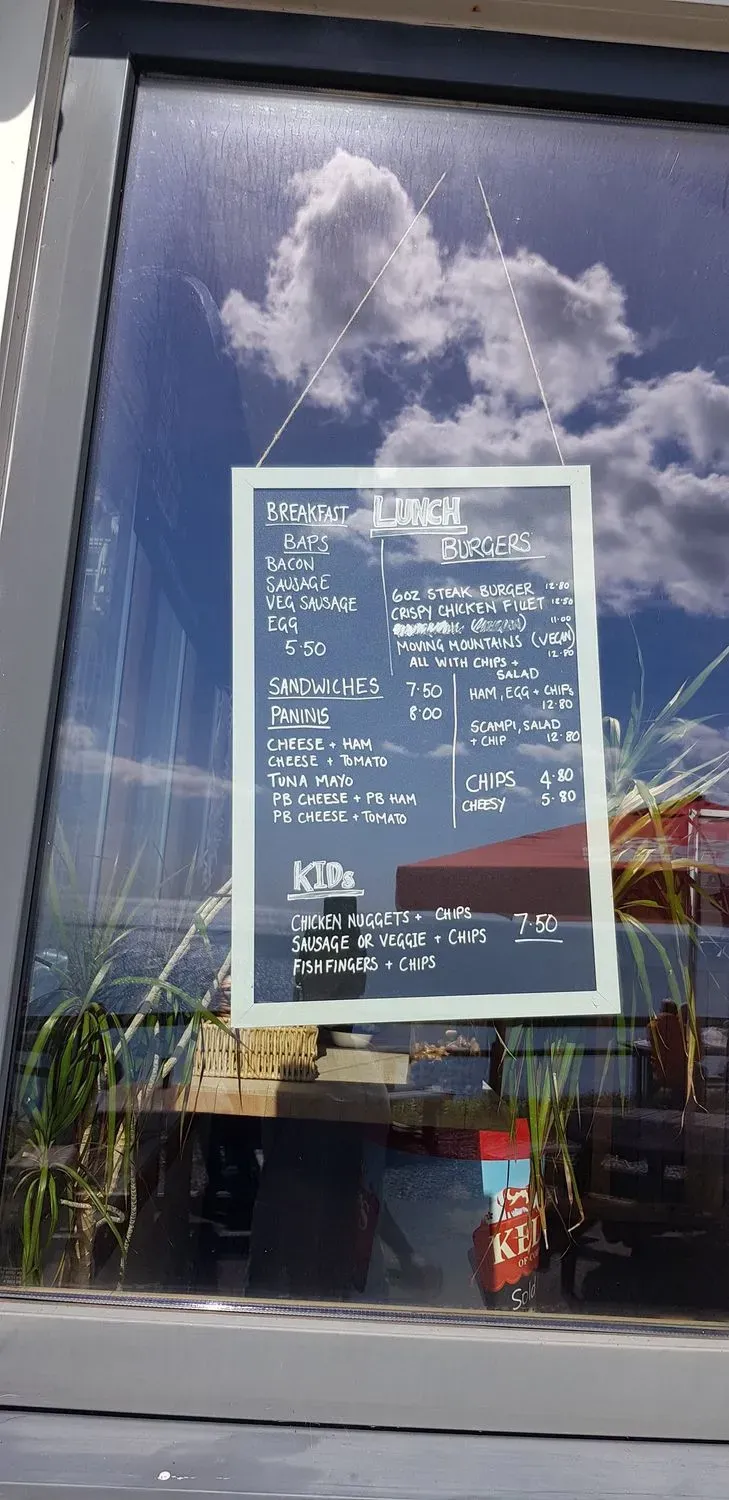 BREAKFAST
BAPS
BACON
SAUSAGE
VEG SAUSAGE
EGG
5.50
LUNCH
BURGERS
6OZ STEAK BURGER 12.80
CRISPY CHICKEN FILLET 12.50
11.00
MOVING MOUNTAINS (VEGAN)
12.80
ALL WITH CHIPS +
SALAD
SANDWICHES 7.50
PANINIS 8.00
CHEESE + HAM
CHEESE + TOMATO
TUNA MAYO
PB CHEESE + PB HAM
PB CHEESE + TOMATO
HAM, EGG + CHIPS
12.80
SCAMPI, SALAD
+ CHIP 12.80
CHIPS 4.80
CHEESY 5.80
KIDS
CHICKEN NUGGETS + CHIPS 7.50
SAUSAGE OR VEGGIE + CHIPS
FISHFINGERS + CHIPS